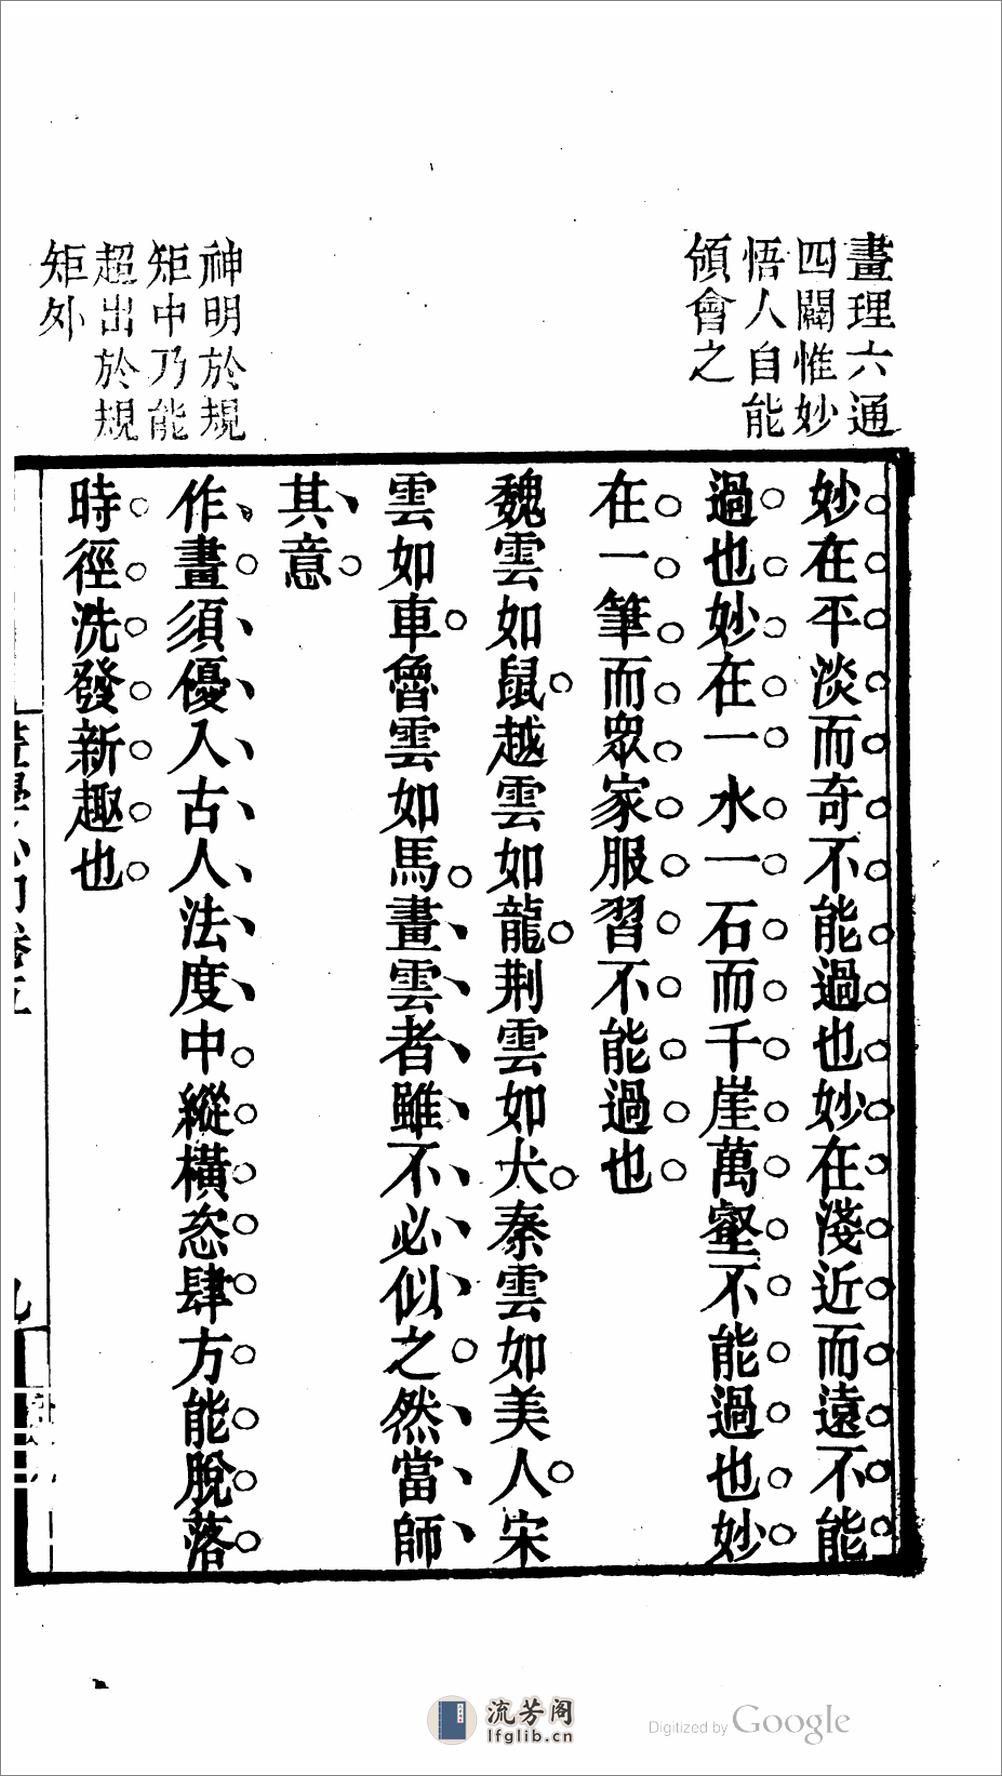 畫理六通
四闢惟妙
悟人自能
領會之
妙在平淡而奇不能過也妙在淺近而遠不能
過也妙在一水一石而千崖萬壑不能過也妙
在一筆而眾家服習不能過也
魏雲如鼠越雲如龍荆雲如犬秦雲如美人宋
雲如車魯雲如馬畫雲者雖不必似之然當師
其意
神明於規
矩中乃能
超出於規
矩外
作畫須優入古人法度中縱橫恣肆方能脫落
時徑洗發新趣也
流芳阁
lfglib.cn
Digitized by Google